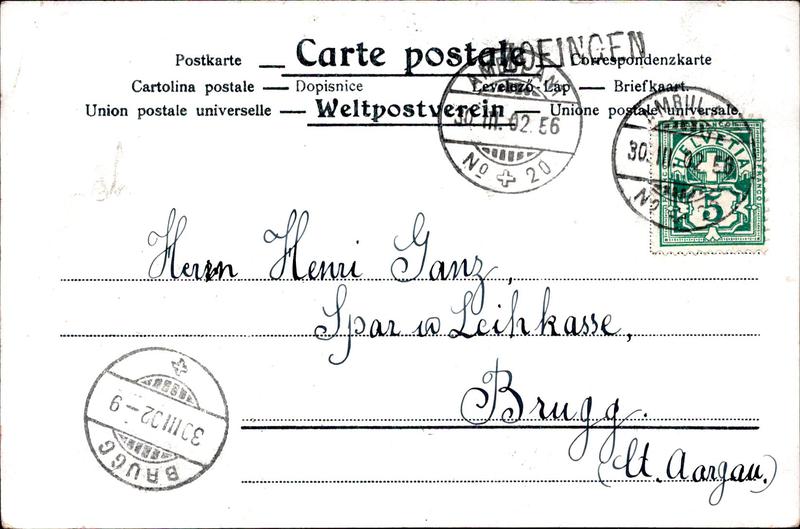 Postkarte — Carte postale — Correspondenzkarte
ZOFINGEN
Cartolina postale — Dopisnice Levelező-Lap — Briefkaart.
Union postale universelle — Weltpostverein — Unione postale universale.
AMBULANT
30. III. 02. 56
No 20
AMBULANT
30. III. 02. 56
No
HELVETIA
FRANCO
5
Herrn Henri Ganz,
Spar u Leihkasse,
Brugg.
(Ct. Aargau.)
BRUGG
30 III 02 – 9